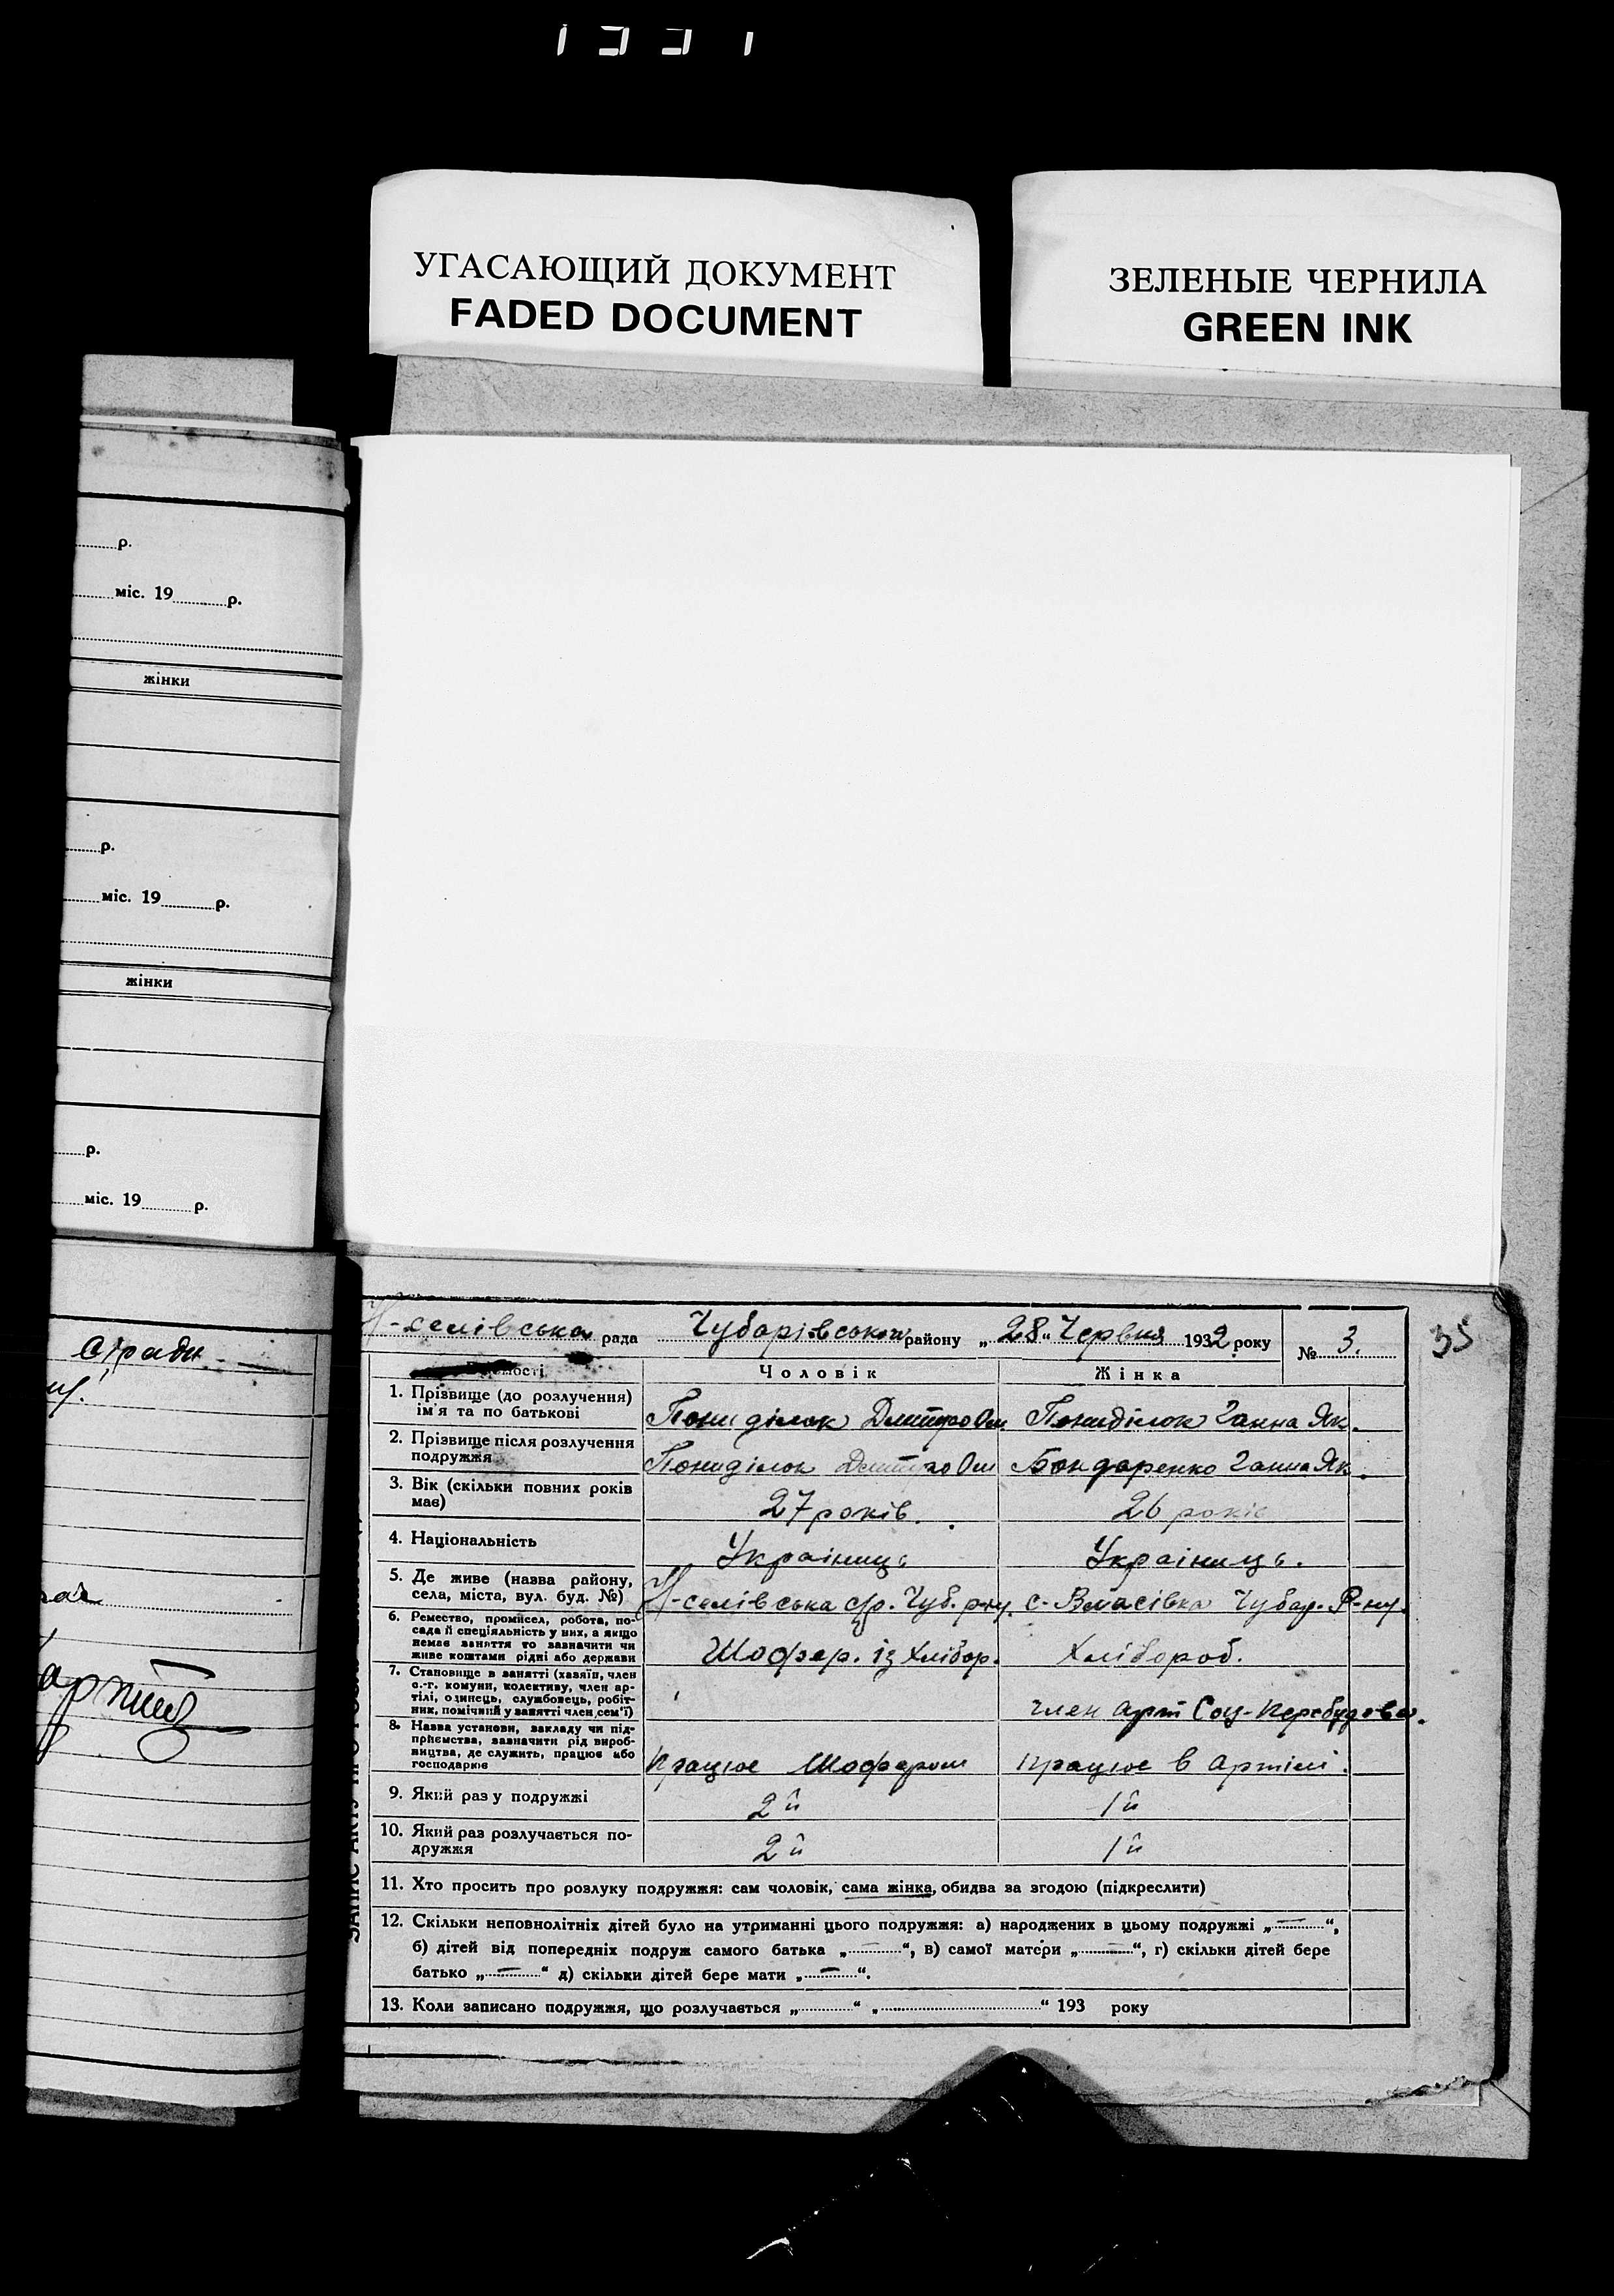 1331
УГАСАЮЩИЙ ДОКУМЕНТ
FADED DOCUMENT
ЗЕЛЕНЫЕ ЧЕРНИЛА
GREEN INK
р.
міс. 19 р.
жінки
р.
міс. 19 р.
жінки
р.
міс. 19 р.
Н-селівська рада Чубарівського району „28“ Червня 1932 року № 3. 35
Чоловік Жінка
1. Прізвище (до розлучення) ім'я та по батькові Пониділок Дмитро Ом. Пониділок Ганна Як.
2. Прізвище після розлучення подружжя Пониділок Дмитро Ом Бондаренко Ганна Як.
3. Вік (скільки повних років має) 27 років. 26 років
4. Національність Україниць Україниць.
5. Де живе (назва району, села, міста, вул. буд. №) Н-селівська с/р. Чуб. р-ну. с. Власівка Чубар. Р-ну.
6. Ремество, промисел, робота, посада й спеціяльність у них, а якщо немає заняття то зазначити чи живе коштами рідні або держави Шофер. із хлібор. Хлібороб.
7. Становище в занятті (хазяїн, член с.-г. комуни, колективу, член артілі, одинець, службовець, робітник, помічний у занятті член сем'ї) член арт Соц-Перебудова.
8. Назва установи, закладу чи підприємства, зазначити рід виробництва, де служить, працює або господарює Працює Шофером працює в артілі.
9. Який раз у подружжі 2й 1й
10. Який раз розлучається подружжя 2й 1й
11. Хто просить про розлуку подружжя: сам чоловік, сама жінка, обидва за згодою (підкреслити)
12. Скільки неповнолітніх дітей було на утриманні цього подружжя: а) народжених в цьому подружжі „—“,
б) дітей від попередніх подруж самого батька „—“, в) самої матері „—“, г) скільки дітей бере
батько „—“ д) скільки дітей бере мати „—“.
13. Коли записано подружжя, що розлучається „ “ „ “ 193 року